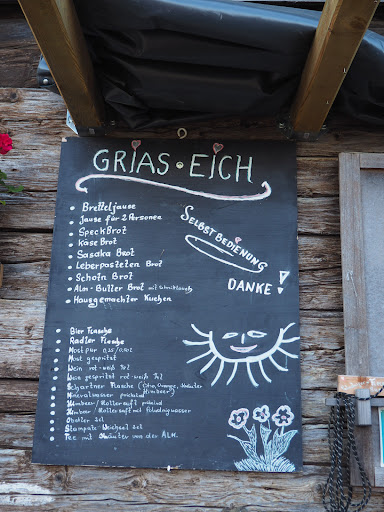 GRIAS • EICH
Bretteljause
Jause für 2 Personen
SpeckBrot
Käse Brot
Sasaka Brot
Leberpasteten Brot
Schoin Brot
Alm-Butter Brot mit Schnittlauch
Hausgemachter Kuchen
SELBSTBEDIENUNG
DANKE!
Bier Flasche
Radler Flasche
Most pur
Most gespritzt
Wein rot-weiß
Wein gespritzt rot-weiß
Flasche (Citro, Orange, Kräuter
Mineralwasser prickelnd Himbeer)
Himbeer / Hollersaft
Himbeer / Hollersaft mit
Obstler 2cl
Stamperle 2cl
Tee mit Kräuter von der ALM.